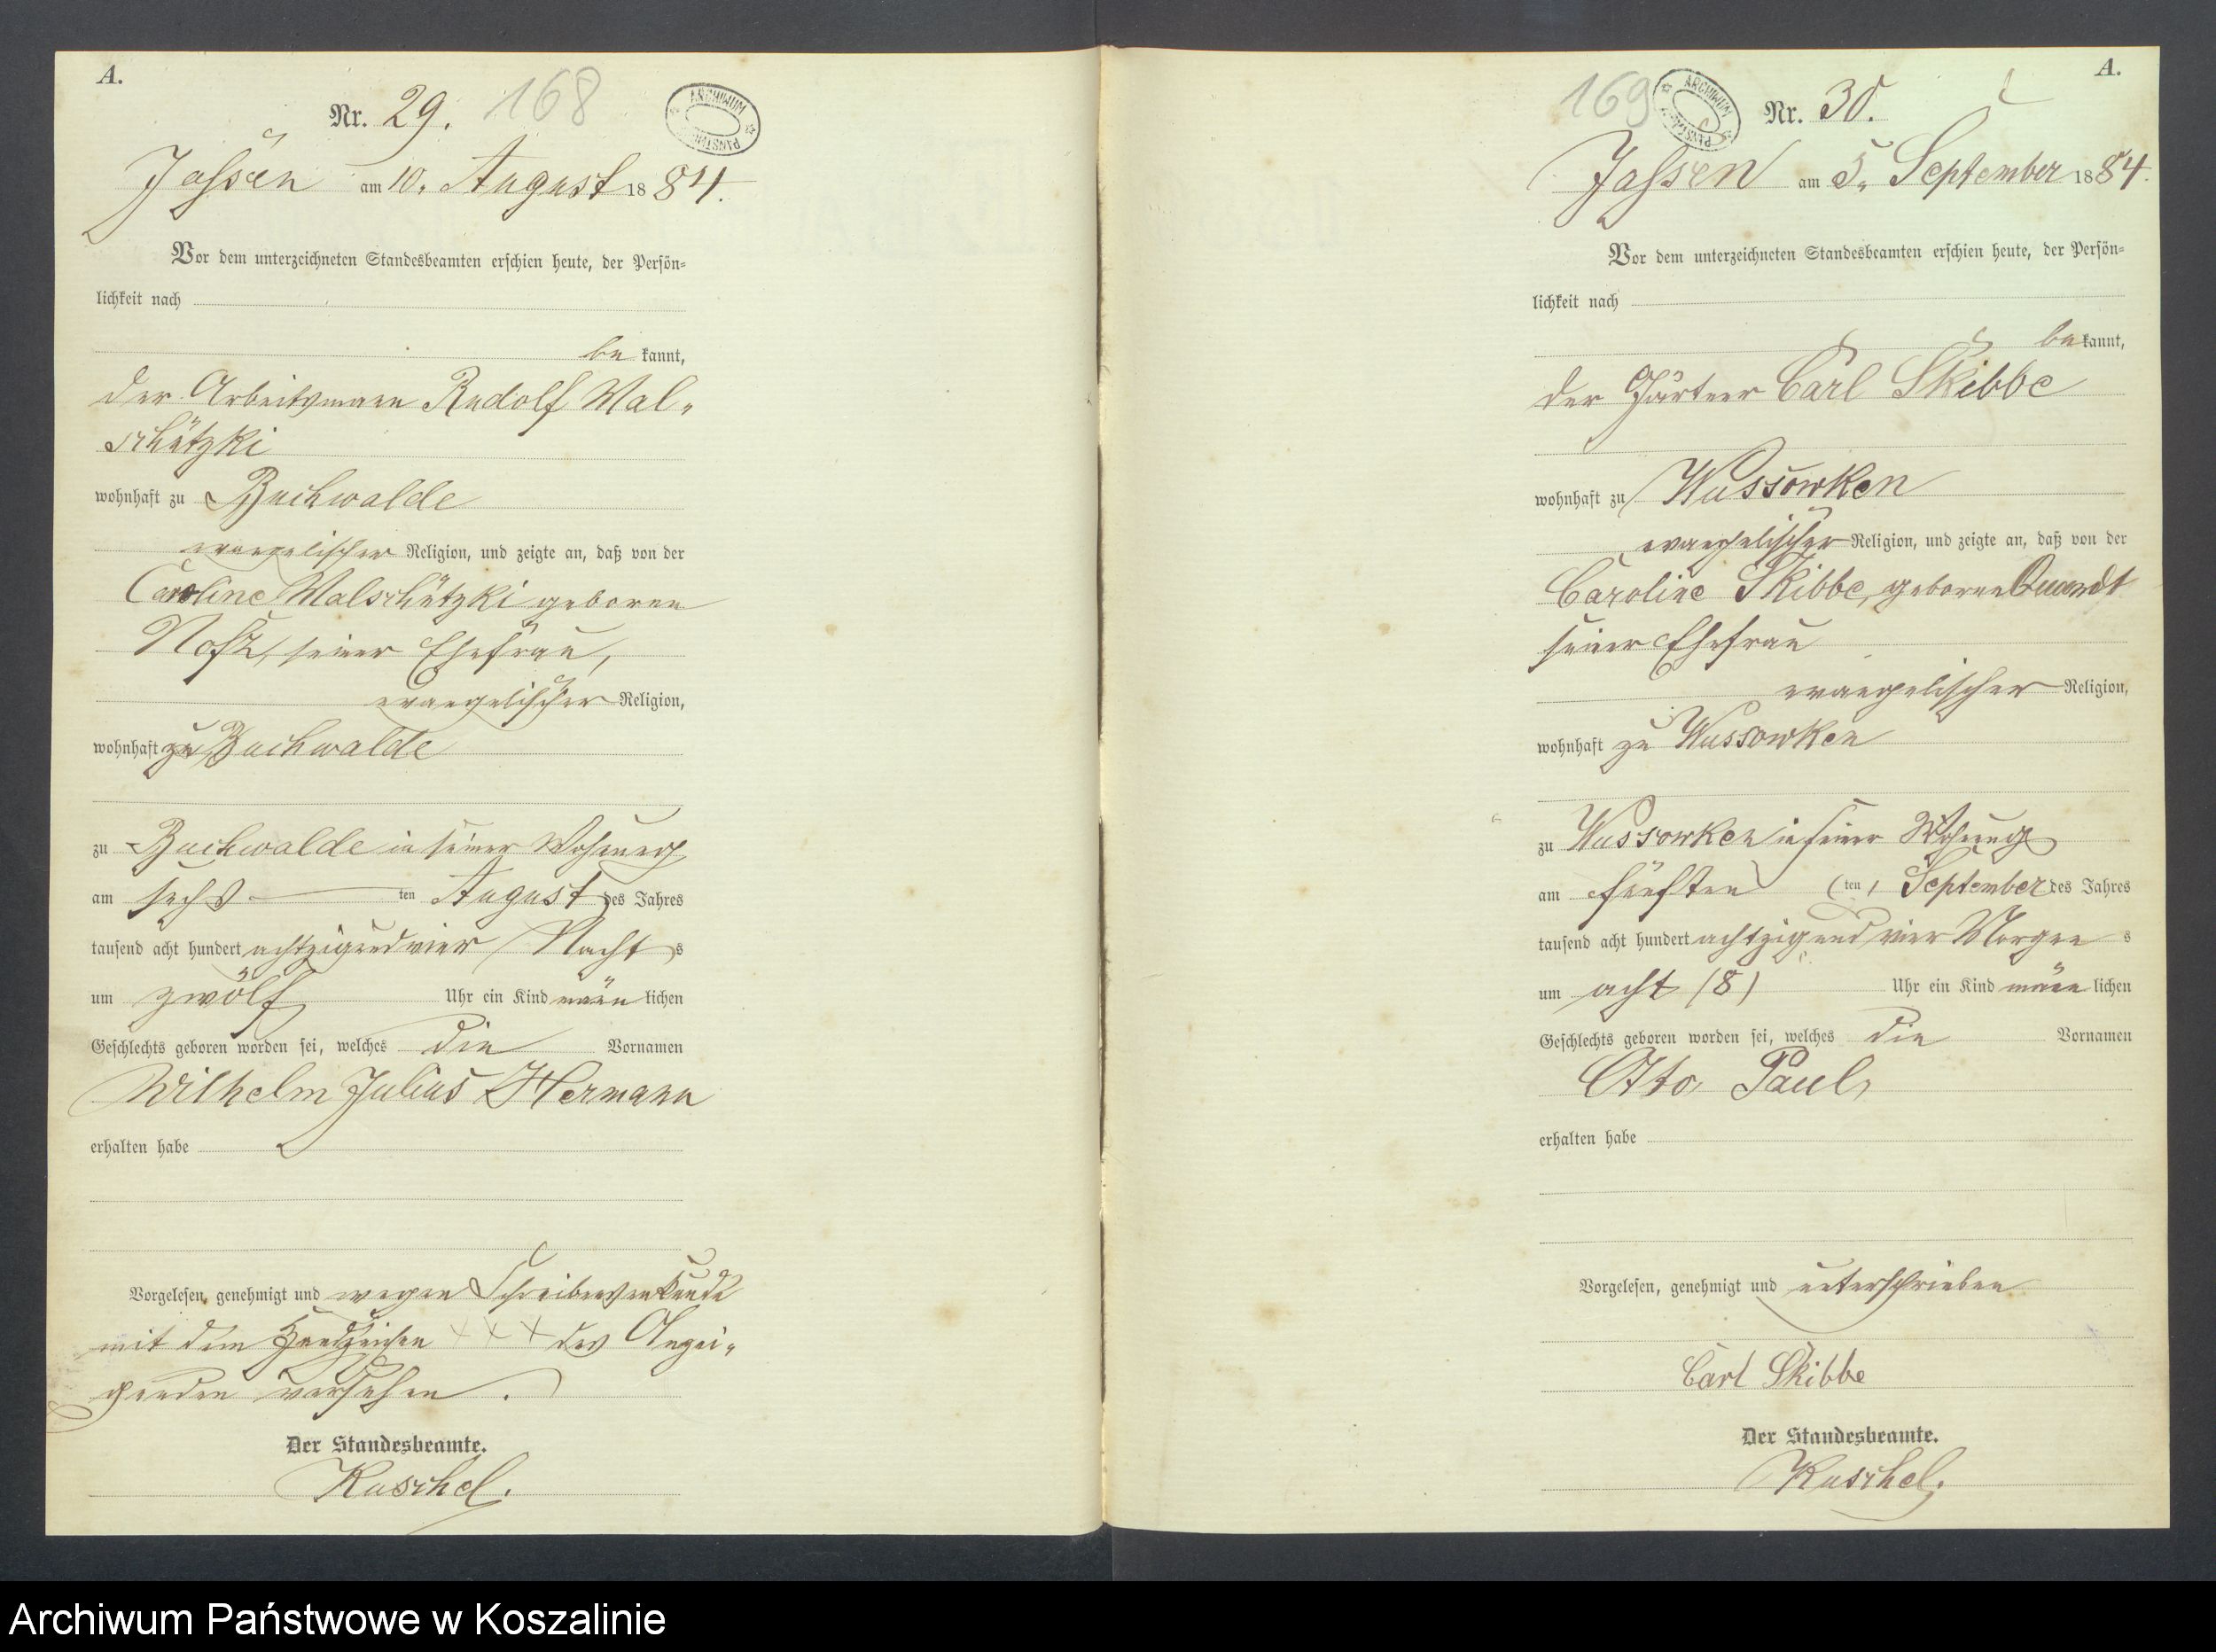 A.
Nr. 29. 168
ARCHIWUM PAŃSTW
Jassen am 10. August 1884.
Vor dem unterzeichneten Standesbeamten erschien heute, der Persön-
lichkeit nach
be kannt,
der Arbeitsmann Rudolf Mal-
schützki
wohnhaft zu Buchwalde
evangelischer Religion, und zeigte an, daß von der
Caroline Malschützki geborne
seiner Ehefrau,
evangelischer Religion,
wohnhaft zu Buchwalde
zu Buchwalde in seiner Wohnung
am sechs ten August des Jahres
tausend acht hundert achtzig und vier Nacht s
um zwölf Uhr ein Kind männ lichen
Geschlechts geboren worden sei, welches die Vornamen
Wilhelm Julius Hermann
erhalten habe
Vorgelesen, genehmigt und wegen Schreibensunkunde
mit dem Handzeichen XXX des Anzei-
genden versehen.
Der Standesbeamte.
Kuschel.
A.
169 Nr. 30.
ARCHIWUM PAŃSTW
Jassen am 5. September 1884.
Vor dem unterzeichneten Standesbeamten erschien heute, der Persön-
lichkeit nach
be kannt,
der Gärtner Carl Skibbe
wohnhaft zu Wussowken
evangelischer Religion, und zeigte an, daß von der
Caroline Skibbe, geborne Quandt
seiner Ehefrau
evangelischer Religion,
wohnhaft zu Wussowken
zu Wussowken in seiner Wohnung
am fünften (ten) September des Jahres
tausend acht hundert achtzig und vier Morgen s
um acht (8) Uhr ein Kind männ lichen
Geschlechts geboren worden sei, welches die Vornamen
Otto Paul,
erhalten habe
Vorgelesen, genehmigt und unterschrieben
Carl Skibbe
Der Standesbeamte.
Kuschel.
Archiwum Państwowe w Koszalinie